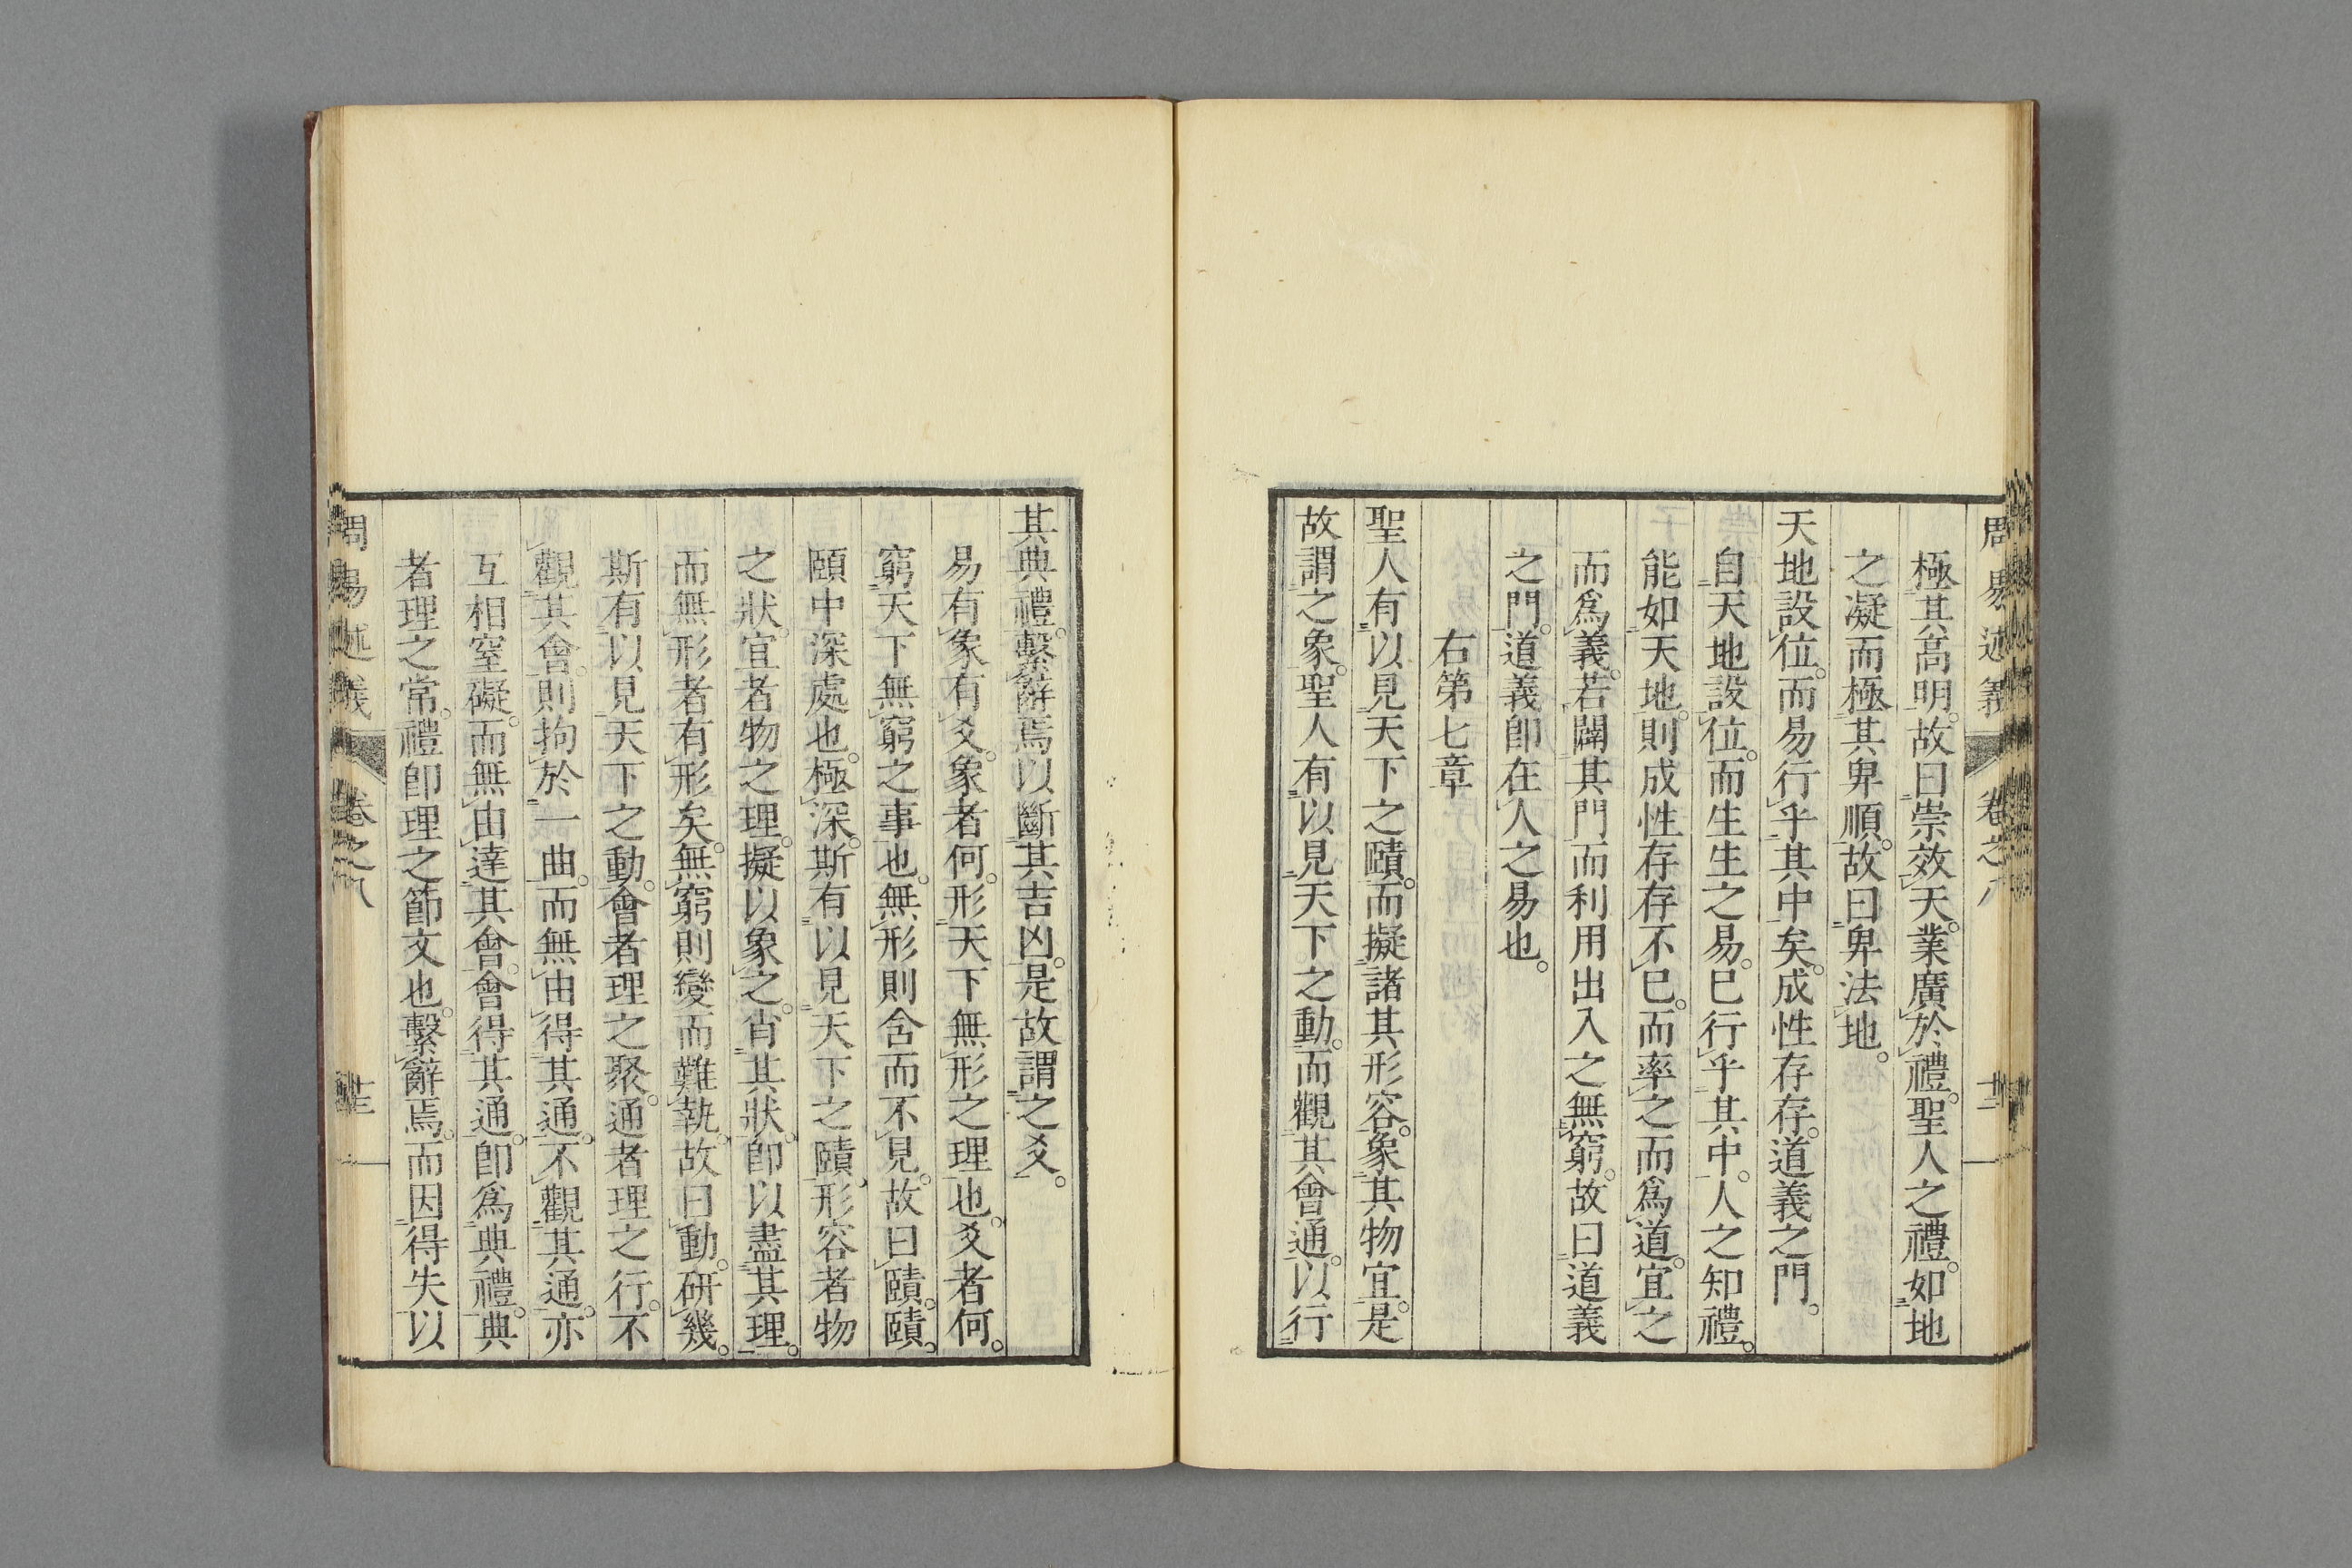 周易述義 卷之八 十二
極其高明。故曰崇效天。業廣於禮。聖人之禮。如地
之凝而極其卑順。故曰卑法地。
天地設位。而易行乎其中矣。成性存存。道義之門。
自天地設位。而生生之易。已行乎其中。人之知禮。
能如天地。則成性存存不已。而率之而爲道。宜之
而爲義。若闢其門而利用出入之無窮。故曰道義
之門。道義卽在人之易也。
右第七章
聖人有以見天下之賾。而擬諸其形容。象其物宜。是
故謂之象。聖人有以見天下之動。而觀其會通。以行
其典禮。繫辭焉以斷其吉凶。是故謂之爻。
易有象有爻。象者何。形天下無形之理也。爻者何。
窮天下無窮之事也。無形則含而不見。故曰賾。賾。
頤中深處也。極深。斯有以見天下之賾。形容者物
之狀。宜者物之理。擬以象之。肖其狀。卽以盡其理。
而無形者有形矣。無窮則變而難執。故曰動。研幾。
斯有以見天下之動。會者理之聚。通者理之行。不
觀其會。則拘於一曲。而無由得其通。不觀其通。亦
互相窒礙。而無由達其會。會得其通。卽爲典禮。典
者理之常。禮卽理之節文也。繫辭焉。而因得失以
周易述義 卷之八 十三